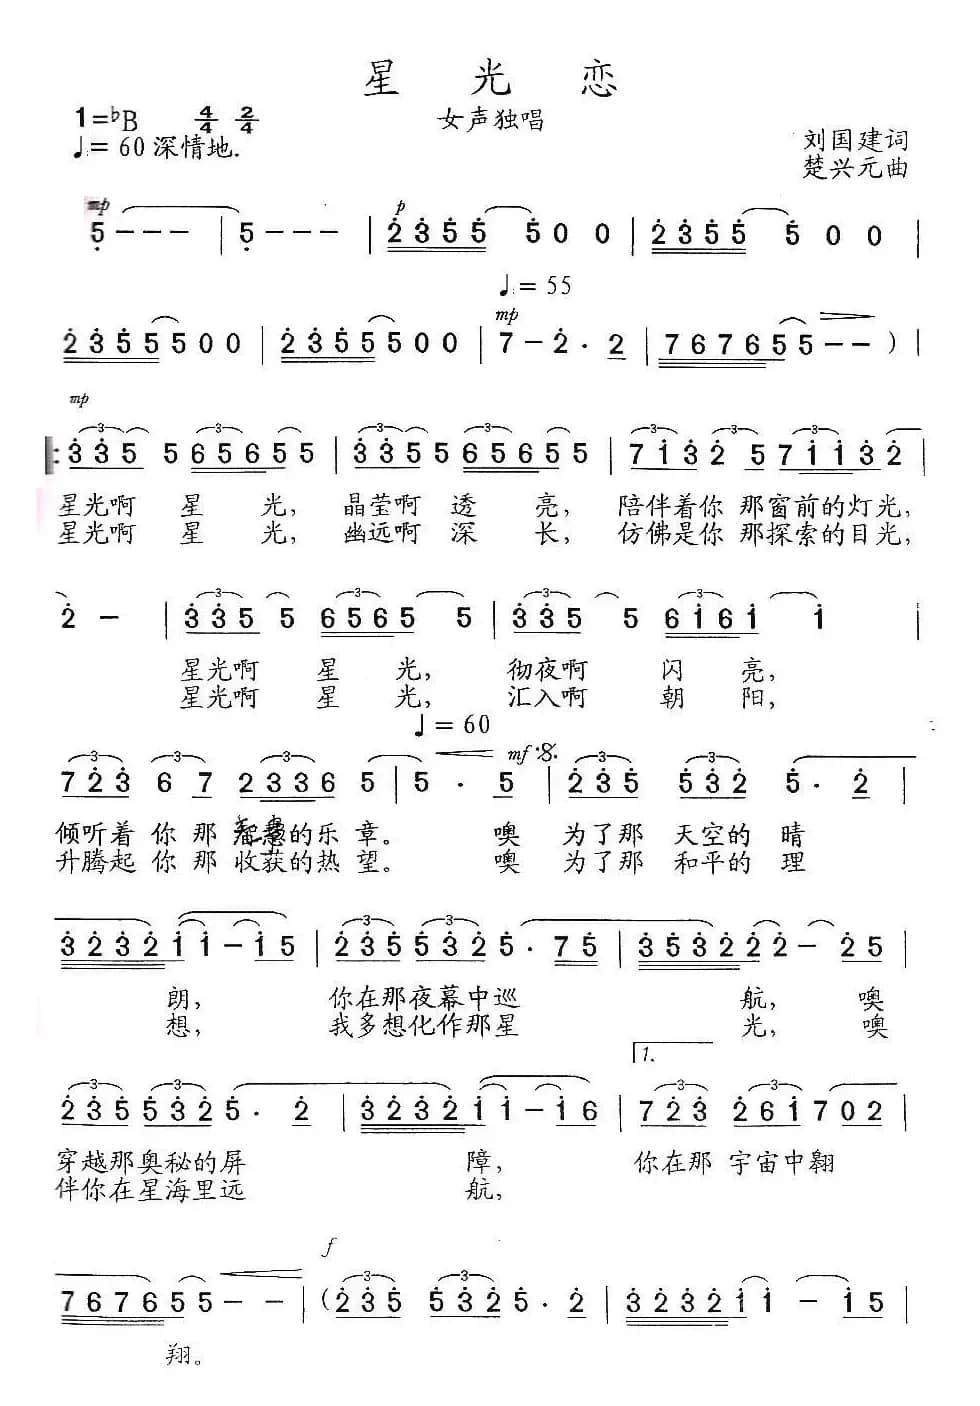 星 光 恋
1=♭B 4/4 2/4
女声独唱
♩= 60 深情地.
刘国建词
楚兴元曲
mp p
5 - - - | 5 - - - | 2 3 5 5 5 0 0 | 2 3 5 5 5 0 0 |
♩= 55
mp
2 3 5 5 5 0 0 | 2 3 5 5 5 0 0 | 7 - 2 · 2 | 7 6 7 6 5 5 - - ) |
mp
3 3 3 3 3 3
: 3 3 5 5 6 5 6 5 5 | 3 3 5 5 6 5 6 5 5 | 7 1 3 2 5 7 1 1 3 2 |
星光啊 星 光, 晶莹啊 透 亮, 陪伴着你 那窗前的灯光,
星光啊 星 光, 幽远啊 深 长, 仿佛是你 那探索的目光,
3 3 3 3
2 - | 3 3 5 5 6 5 6 5 5 5 | 3 3 5 5 6 1 6 1 1 |
星光啊 星 光, 彻夜啊 闪 亮,
星光啊 星 光, 汇入啊 朝 阳,
♩= 60
mf 𝄋
3 3 3 3
7 2 3 6 7 2 3 3 6 5 | 5 · 5 | 2 3 5 5 3 2 5 · 2 |
倾听着 你 那 智慧的乐 章。 噢 为了那 天空的 晴
升腾起 你 那 收获的热 望。 噢 为了那 和平的 理
3 3
3 2 3 2 1 1 - 1 5 | 2 3 5 5 3 2 5 · 7 5 | 3 5 3 2 2 2 - 2 5 |
朗, 你在那夜幕中巡 航, 噢
想, 我多想化作那星 光, 噢
1.
3 3 3 3
2 3 5 5 3 2 5 · 2 | 3 2 3 2 1 1 - 1 6 | 7 2 3 2 6 1 7 0 2 |
穿越那奥秘的屏 障, 你在那 宇宙中翱
伴你在星海里远 航,
f
3 3
7 6 7 6 5 5 - - | ( 2 3 5 5 3 2 5 · 2 | 3 2 3 2 1 1 - 1 5 |
翔。